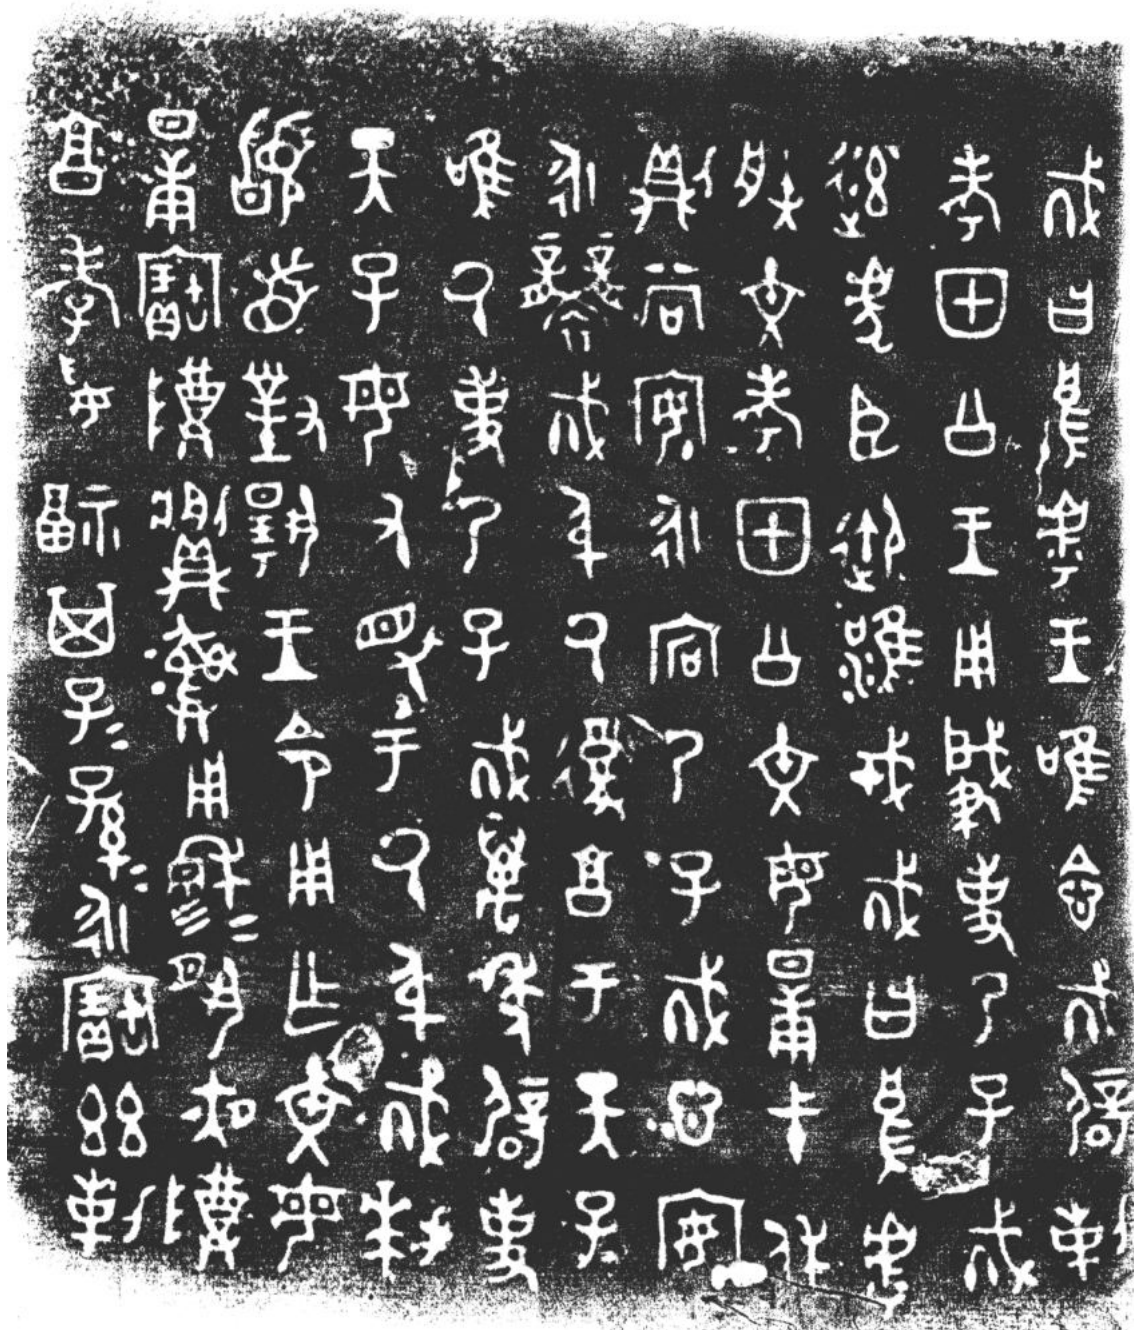 𢦚曰烏虖王唯念𢦚辟剌
考甲公王用肇事乃子𢦚
率虎臣御淮戎𢦚曰烏虖
朕文考甲公文母日庚弋休
則尚安永宕乃子𢦚心安
永襲𢦚身氒復享于天子
唯氒事乃子𢦚萬年辟事
天子毋又眈于氒身𢦚拜
稽首對揚王令用乍文母
日庚寶尊彝用穆夙夜尊
享孝妥福其子子孫孫永寶茲剌